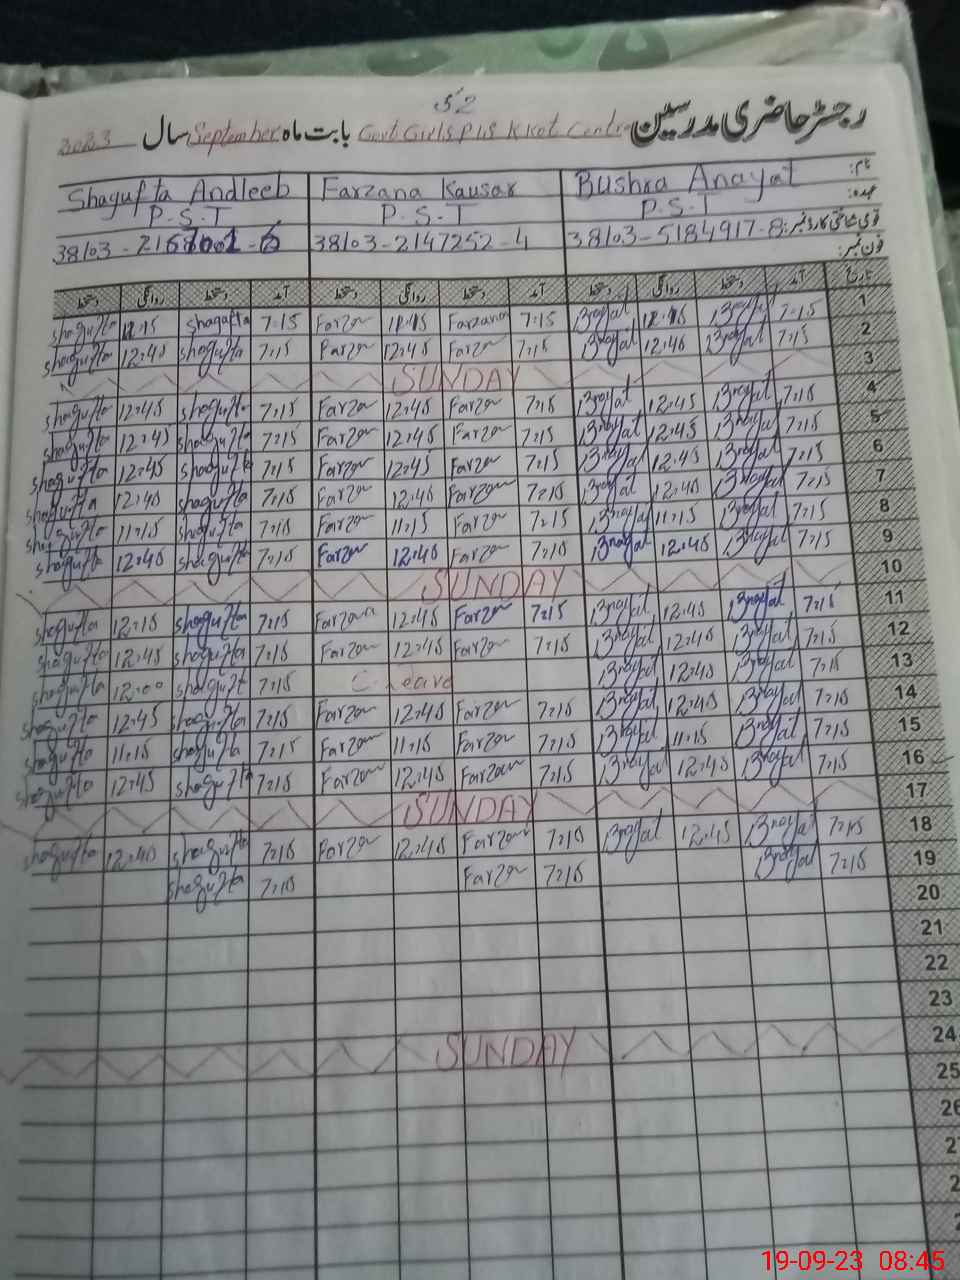 رجسٹر حاضری مدرسین Govt Girls P/S K Kot Centre بابت ماہ September سال 2023
Shagufta Andleeb Farzana Kausar Bushra Anayat نام:
P.S.T P.S.T P.S.T عہدہ:
38103-2147252-4 38103-5184917-8 قومی شناختی کارڈ نمبر:
فون نمبر:
دستخط روانگی دستخط آمد دستخط روانگی دستخط آمد دستخط روانگی دستخط آمد تاریخ
shagufta 11:15 shagufta 7:15 Farzan 11:15 Farzana 7:15 Bnayat 11:15 Bnayat 7:15 1
shagufta 12:45 shagufta 7:15 Farzan 12:45 Farzan 7:15 Bnayat 12:45 Bnayat 7:15 2
SUNDAY 3
shagufta 12:45 shagufta 7:15 Farzan 12:45 Farzan 7:15 Bnayat 12:45 Bnayat 7:15 4
shagufta 12:45 shagufta 7:15 Farzan 12:45 Farzan 7:15 Bnayat 12:45 Bnayat 7:15 5
shagufta 12:45 shagufta 7:15 Farzan 12:45 Farzan 7:15 Bnayat 12:45 Bnayat 7:15 6
shagufta 12:45 shagufta 7:15 Farzan 12:45 Farzan 7:15 Bnayat 12:45 Bnayat 7:15 7
shagufta 11:15 shagufta 7:15 Farzan 11:15 Farzan 7:15 Bnayat 11:15 Bnayat 7:15 8
shagufta 12:45 shagufta 7:15 Farzan 12:45 Farzan 7:15 Bnayat 12:45 Bnayat 7:15 9
SUNDAY 10
shagufta 12:15 shagufta 7:15 Farzan 12:45 Farzan 7:15 Bnayat 12:45 Bnayat 7:15 11
shagufta 12:45 shagufta 7:15 Farzan 12:45 Farzan 7:15 Bnayat 12:45 Bnayat 7:15 12
shagufta 12:00 shagufta 7:15 C-Leave Bnayat 12:45 Bnayat 7:15 13
shagufta 12:45 shagufta 7:15 Farzan 12:45 Farzan 7:15 Bnayat 12:45 Bnayat 7:15 14
shagufta 11:15 shagufta 7:15 Farzan 11:15 Farzan 7:15 Bnayat 11:15 Bnayat 7:15 15
shagufta 12:45 shagufta 7:15 Farzan 12:45 Farzan 7:15 Bnayat 12:45 Bnayat 7:15 16
SUNDAY 17
shagufta 12:45 shagufta 7:15 Farzan 12:45 Farzan 7:15 Bnayat 12:45 Bnayat 7:15 18
shagufta 7:15 Farzan 7:15 Bnayat 7:15 19
20
21
22
23
SUNDAY 24
25
26
19-09-23 08:45